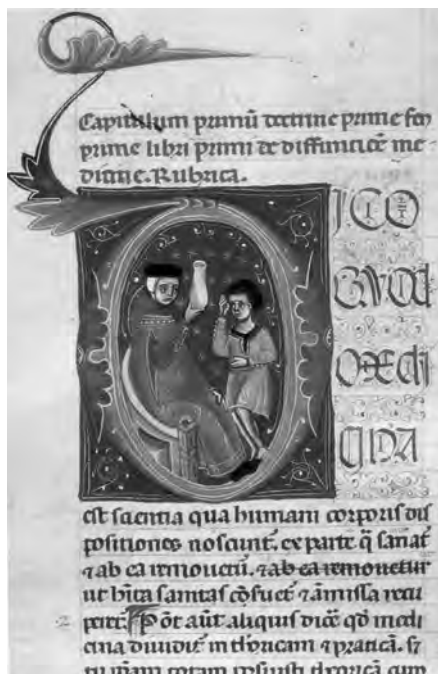 Capitulum primū doctrine prime fen
prime libri primi de diffinicōe me-
dicine. Rubrica.
DICO
QVOD
MEDI
CINA
est scientia qua humani corporis dis
positiones noscunt᷑. ex parte q̄ sanat᷑
⁊ ab ea remouet᷑. ⁊ ab ea remouetur
ut hīta sanitas cōſuet᷑ ⁊ āmissa recu
peret᷑. Pōt aūt aliquis dicē qd̄ medi
cina diuidit᷑ in theoricam ⁊ praticā. ⁊
totam